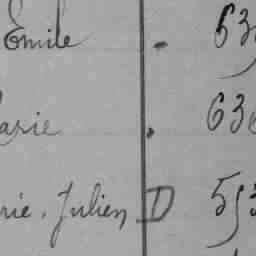 Emile - 63
arie . 63
rie. Julien D 553